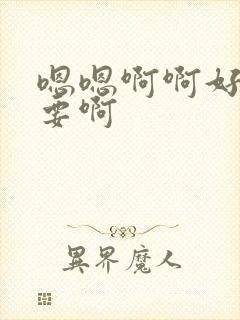 嗯嗯啊啊好
要啊
異界魔人